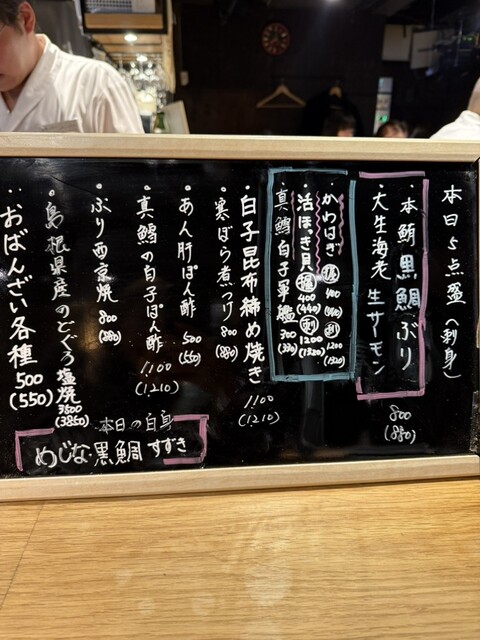 本日5点盛(刺身)
・本鮪 黒鯛 ぶり
・大生海老 生サーモン
800
(880)
・かわはぎ 握 400 (440) 刺 1200 (1320)
・活ほき貝 握 400 (440) 刺 1200 (1320)
・真鱈白子軍艦 300 (330)
・白子昆布締め焼き 1100 (1210)
・寒ぼら煮つけ 800 (880)
・あん肝ぽん酢 500 (550)
・真鱈の白子ぽん酢 1100 (1210)
・ぶり西京焼 800 (880)
・島根県産のどぐろ塩焼 3500 (3850)
・おばんざい各種 500 (550)
本日の白身
めじな・黒鯛 すずき